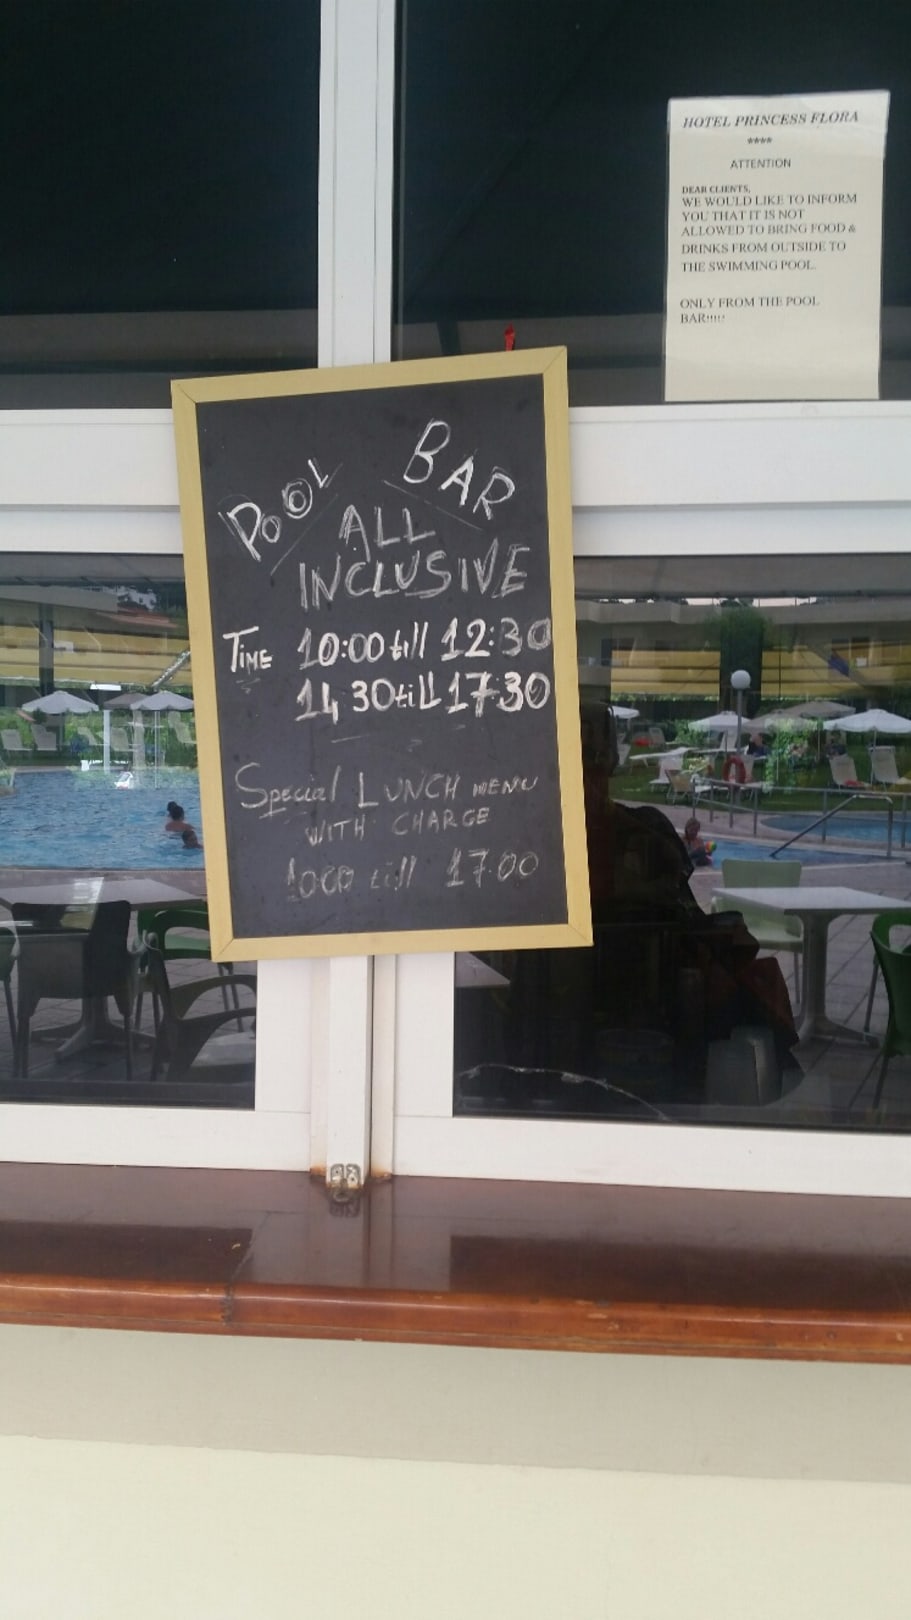 HOTEL PRINCESS FLORA
****
ATTENTION
DEAR CLIENTS,
WE WOULD LIKE TO INFORM
YOU THAT IT IS NOT
ALLOWED TO BRING FOOD &
DRINKS FROM OUTSIDE TO
THE SWIMMING POOL.
ONLY FROM THE POOL
BAR!!!!!
POOL BAR
ALL
INCLUSIVE
TIME 10:00 till 12:30
14 30 till 17 30
Special LUNCH MENU
WITH CHARGE
10:00 till 17:00